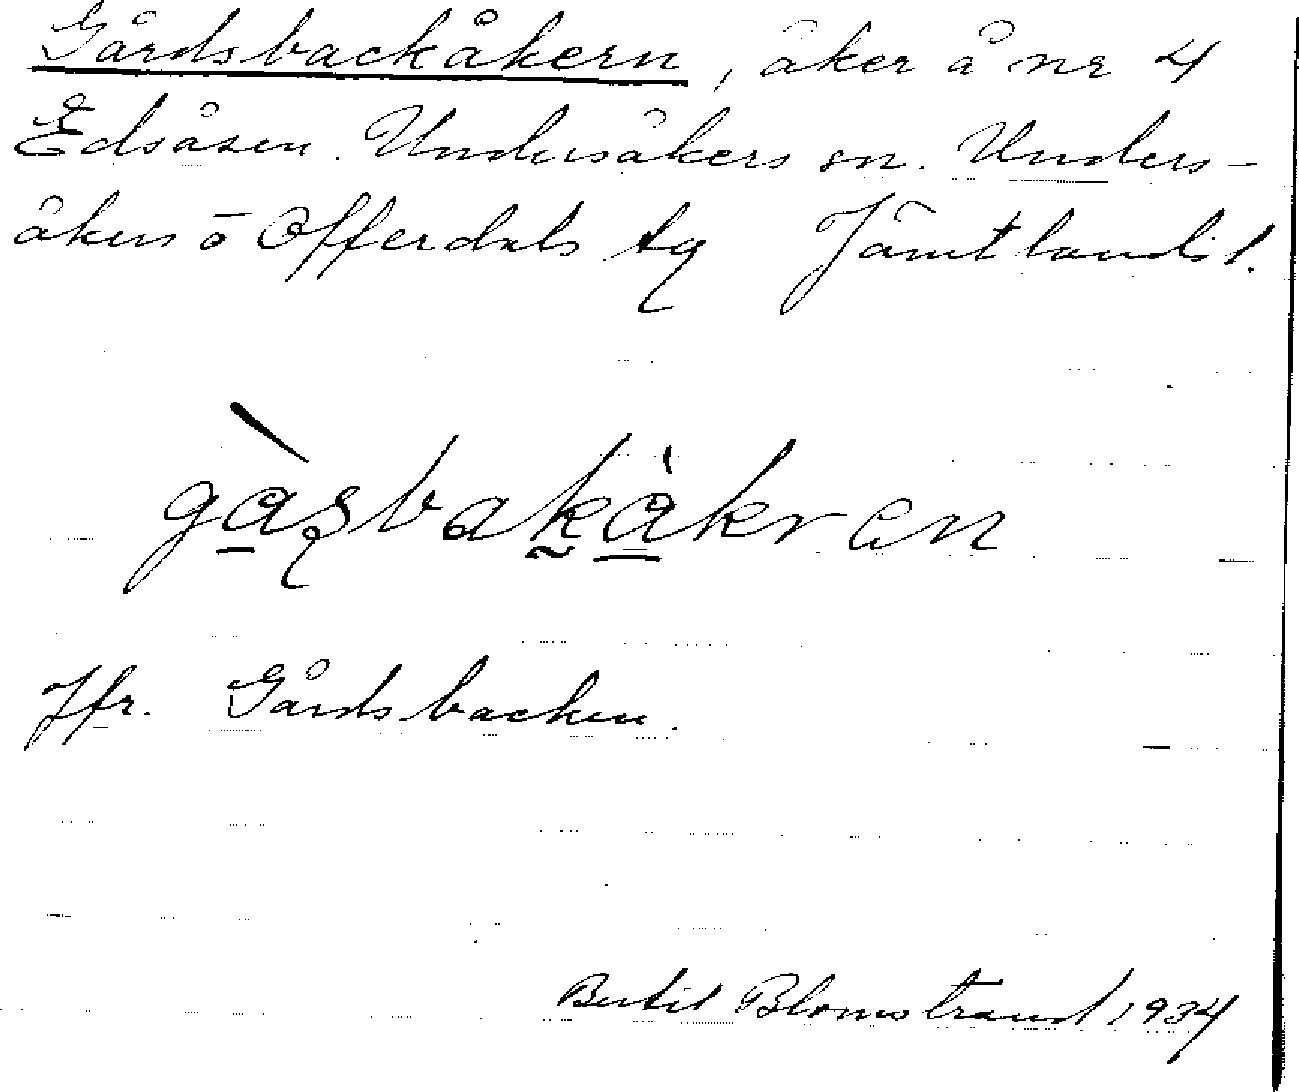 Gårdsbackåkern, åker å nr 4
Edsåsen. Undersåkers sn. Unders-
åkers o Offerdals tg Jämtlands l.
gåsbakåkren
Jfr. Gårdsbacken.
Bertil Blomstrand 1934